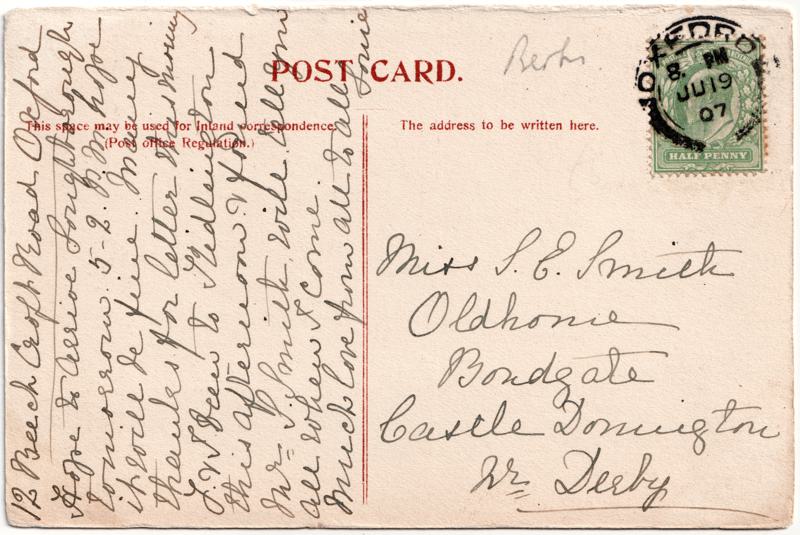 POST CARD.
Berks
This space may be used for Inland correspondence.
(Post office Regulation.)
The address to be written here.
8. PM
JU 19
07
HALF PENNY
Miss S. E. Smith
Oldhome
Bondgate
Castle Donnington
Nr Derby
12 Beech Croft Road Oxford
Hope to arrive Loughborough
tomorrow 5-2. P.M. hope
it will be fine. Many
thanks for letter this morning
I. W. Been to Kidlington
this afternoon & found
Mr. S. Smith, will tell you
all when I come.
Much love from all to all